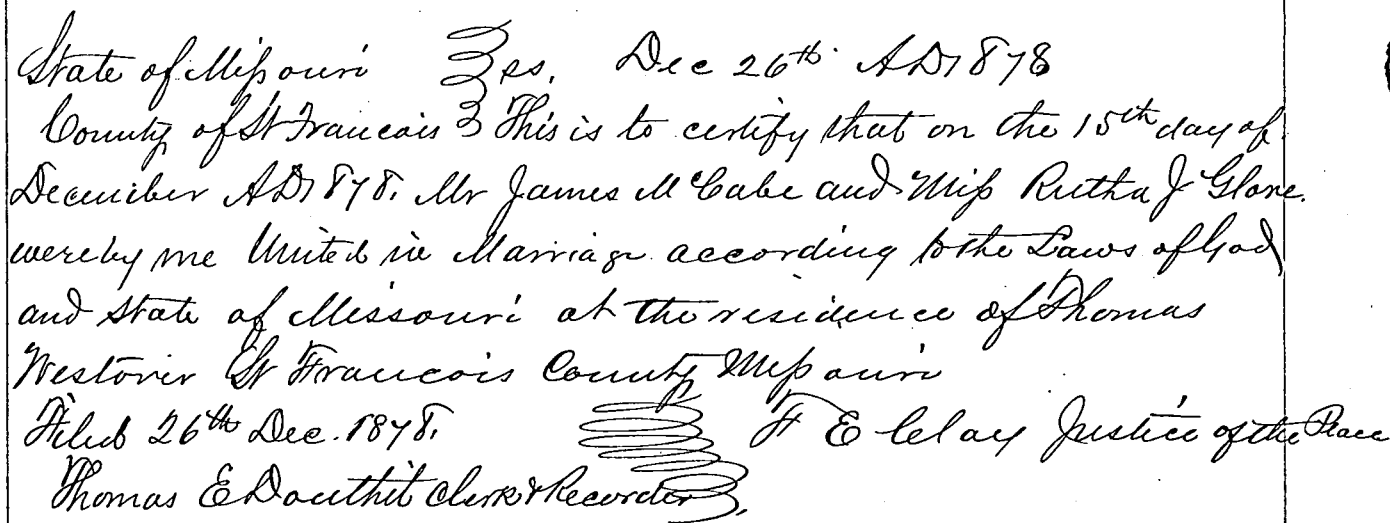 State of Missouri ss. Dec 26th AD 1878
County of St Francais This is to certify that on the 15th day of
December AD 1878. Mr James McCabe and Miss Rutha J Glore.
were by me United in Marriage according to the Laws of God
and State of Missouri at the residence of Thomas
Westover St Francois County Missouri
Filed 26th Dec. 1878. F E Clay Justice of the Peace
Thomas E Douthit Clerk & Recorder.